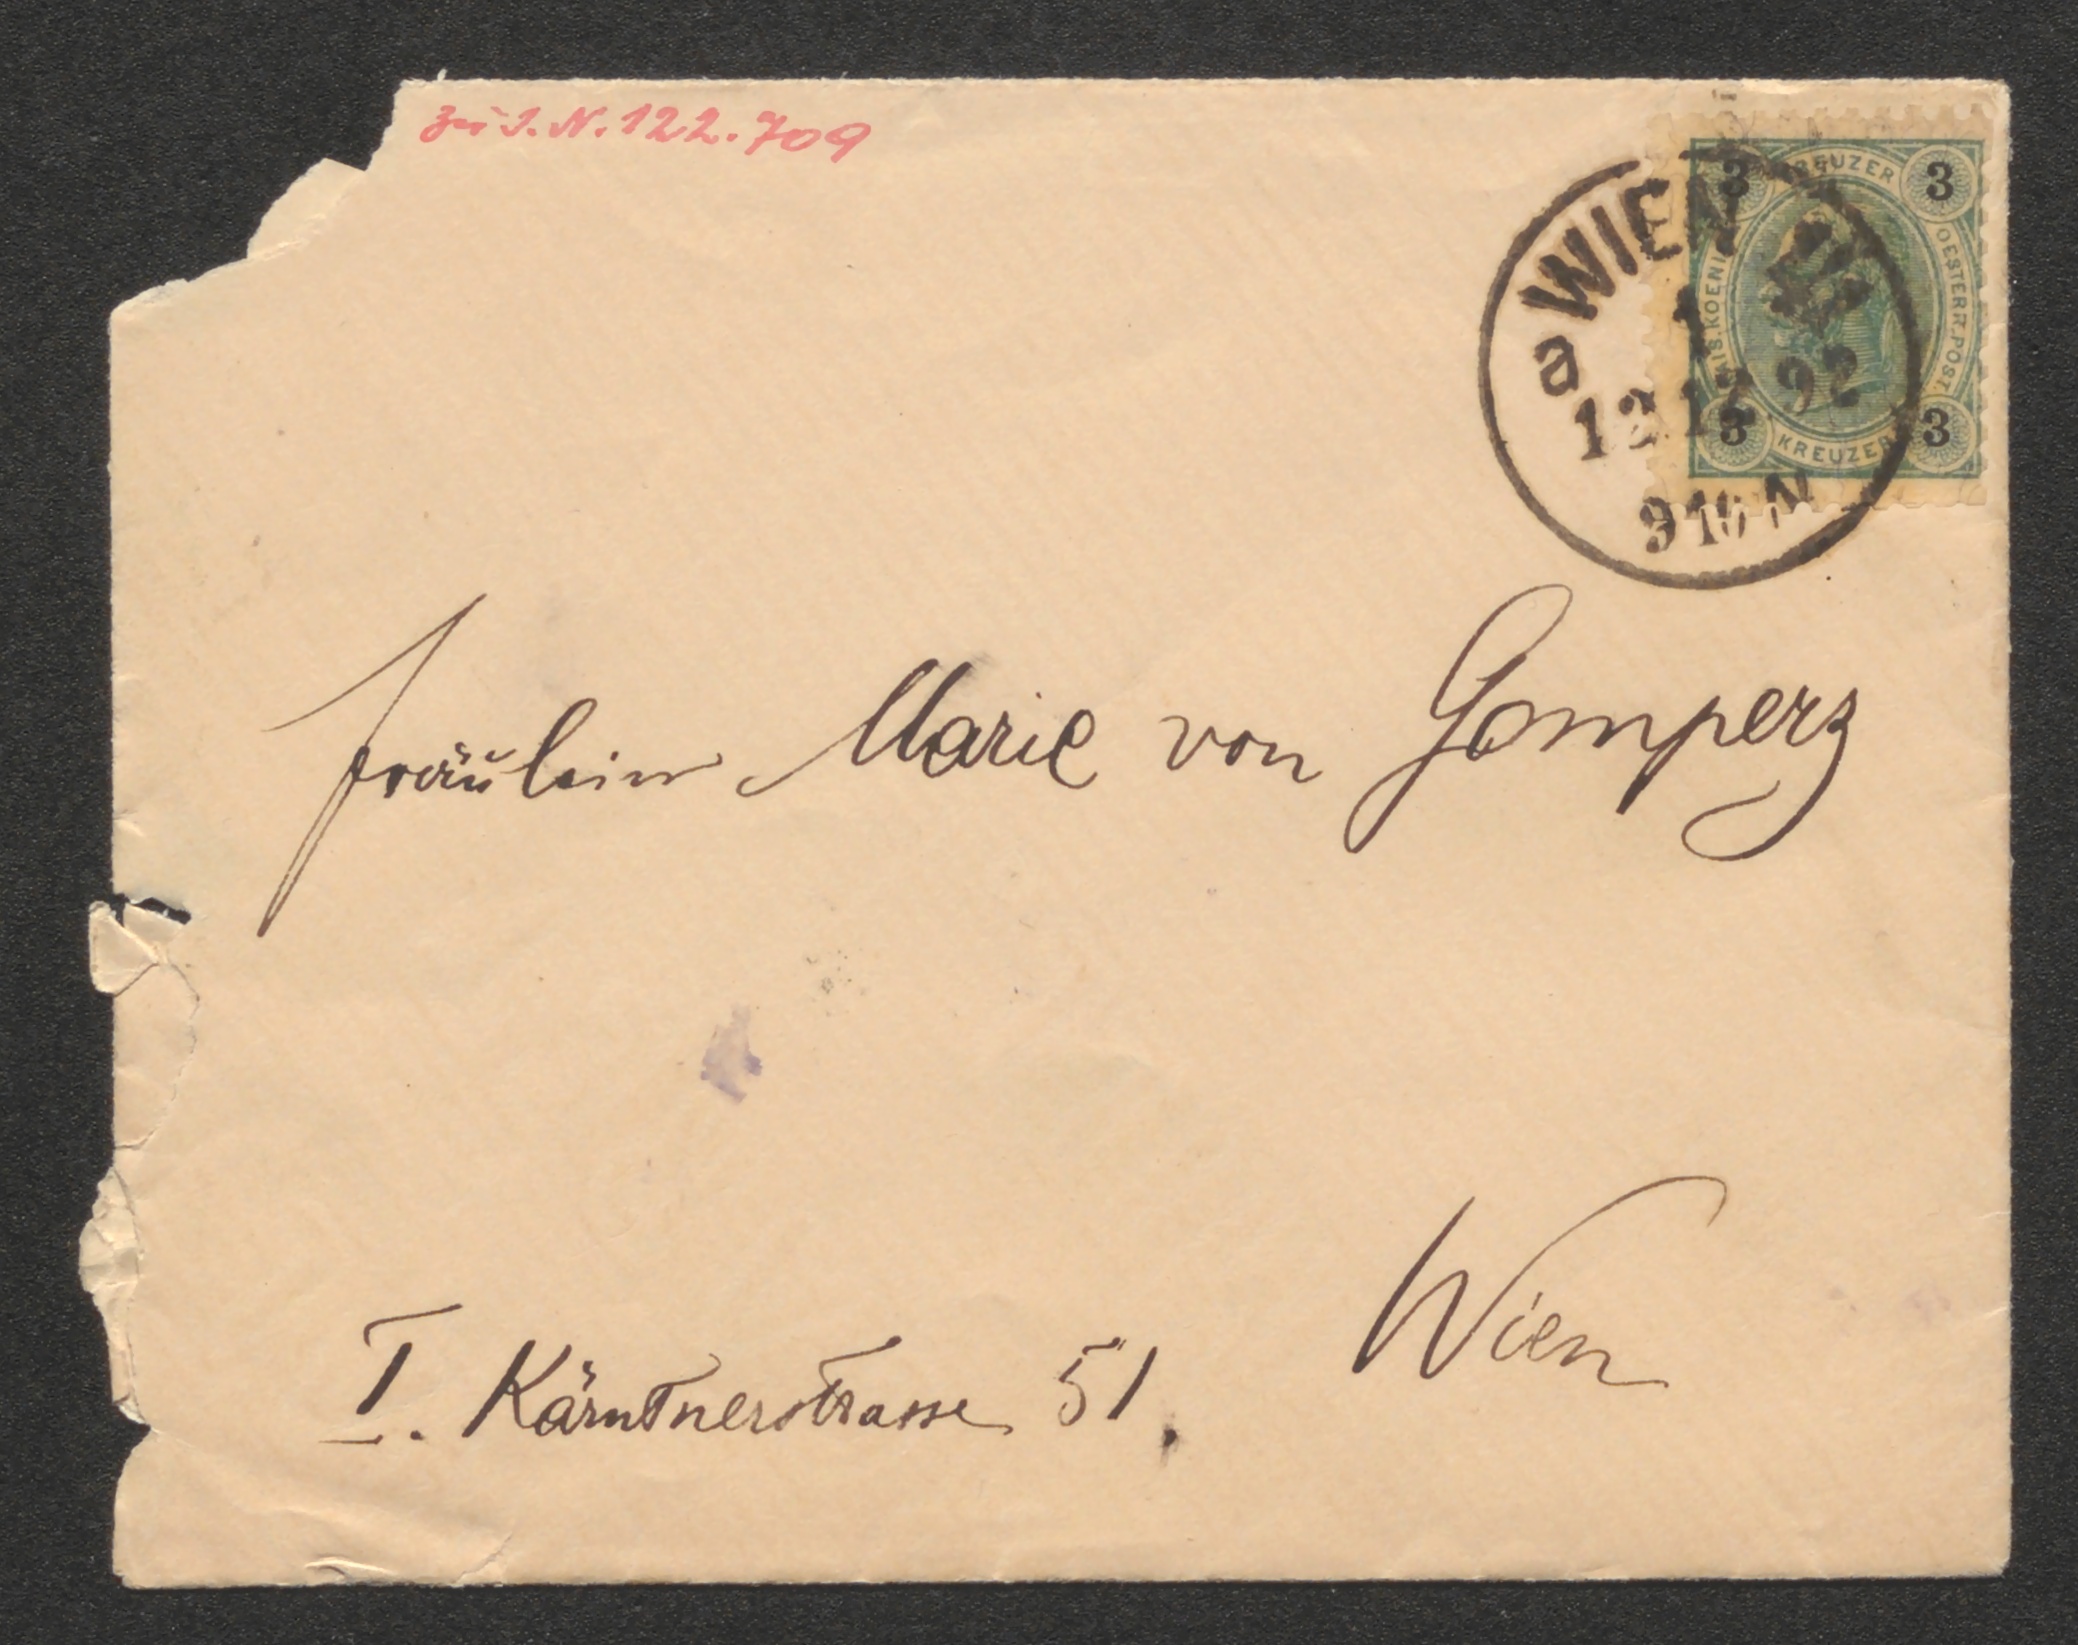 zu I.N. 122.709
KREUZER
3 3
KAIS. KOENIGL. OESTERR. POST.
3 3
KREUZER
WIEN
1
12 12 92
9 15 N
Fräulein Marie von Gomperz
Wien
I. Kärntnerstrasse 51.